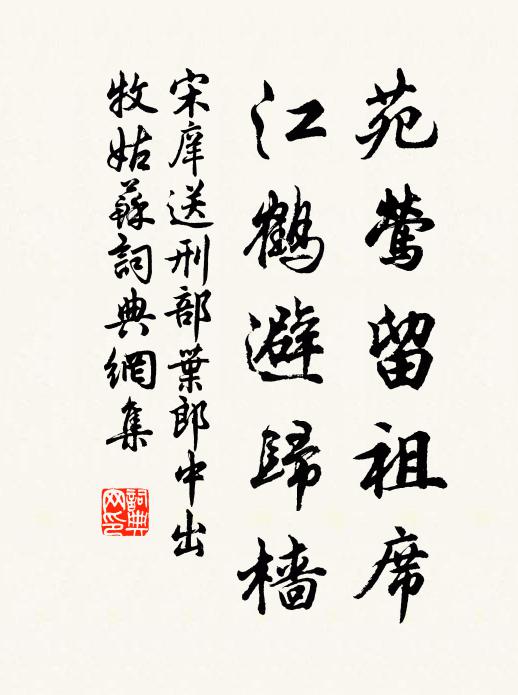 苑鶯留祖席
江鶴避歸檣
宋庠送刑部葉郎中出
牧姑蘇詞典網集
詞典网印